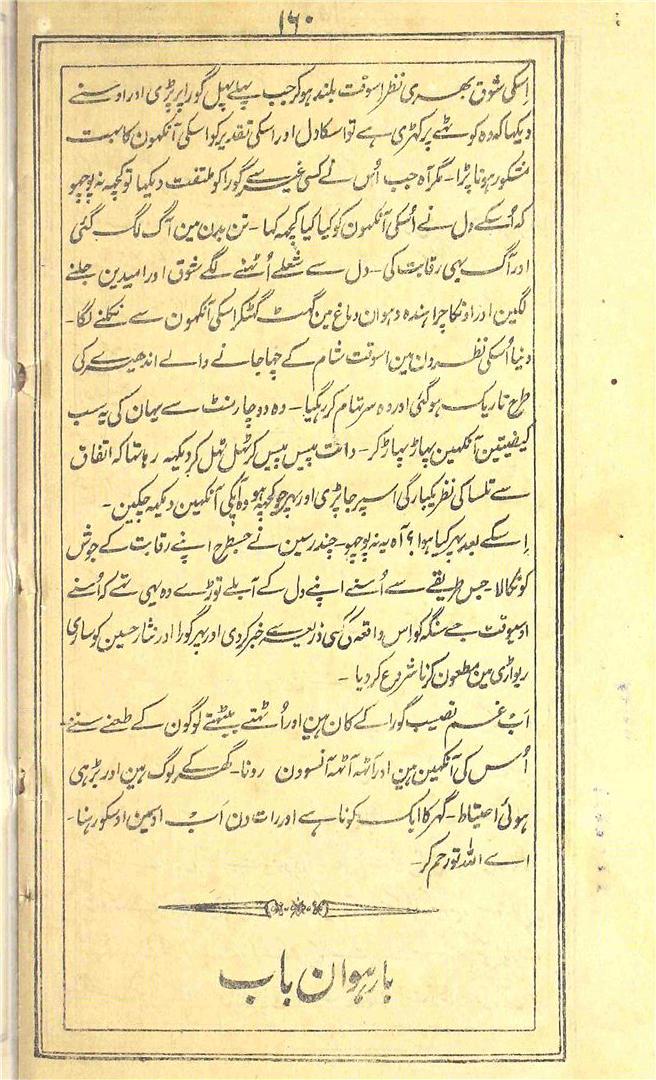 ۱۶۰
اِسکی شوق بھری نظر اسوقت بلند ہوکر جب پہلے پہل گورا پر پڑی اور اوسنے
دیکھا کہ وہ کوٹھے پر کھڑی ہے تو اسکا دل اور اسکی تقدیر کو اسکی آنکھون کا بہت
مشکور ہونا پڑا ۔ مگر آہ جب اُس نے کسی غیر سے گورا کو ملتفت دیکھا تو کچھہ نہ پوچھو
کہ اُسکے دل نے اُسکی آنکھون کو کیا کیا کچھہ کہا ۔ تن بدن مین آگ لگ گئی
اور آگ بھی رقابت کی ۔ دل سے شعلے اُٹھنے لگے شوق اور امیدین جلنے
لگین اور اونکا چراہندہ دہوان دماغ مین گھٹ گھٹکر اسکی آنکھون سے نکلنے لگا ۔
دنیا اُسکی نظرون مین اسوقت شام کے چھا جانے والے اندھیرے کی
طرح تاریک ہوگئی اور وہ سر تھام کر رہگیا ۔ وہ دو چار منٹ سے یہان کی یہ سب
کیفیتین آنکھین پھاڑ پھاڑ کر ۔ دانت پیس پیس کر ٹہل ٹہل کر دیکھہ رہا تھا کہ اتفاق
سے تلسا کی نظر یکبارگی اسپر جا پڑی اور پھر جو کچھہ ہو وہ آپکی آنکھین دیکھہ چکین ۔
اِسکے بعد پھر کیا ہوا ؟ آہ یہ نہ پوچھو ۔ چندر سین نے جسطرح اپنے رقابت کے جوش
کو نکالا ۔ جس طریقے سے اُسنے اپنے دل کے آبلے توڑے وہ یہی تھے کہ اُسنے
اوسیوقت جے سنگہ کو اِس واقعہ کی کسی ذریعہ سے خبر کردی اور پھر گورا اور نثار حسین کو ساری
ریواڑی مین مطعون کرنا شروع کردیا ۔
اَب غم نصیب گورا کے کان ہین اور اُٹھتے بیٹھتے لوگون کے طعنے سننے ۔
اُس کی آنکھین ہین اور آٹھہ آٹھہ آنسودن رونا ۔ گھر کے لوگ ہین اور بڑہی
ہوئی احتیاط ۔ گھر کا ایک کونا ہے اور رات دن اَب اوسین اوسکو رہنا ۔
اے اللہ تو رحم کر ۔
بارہوان باب